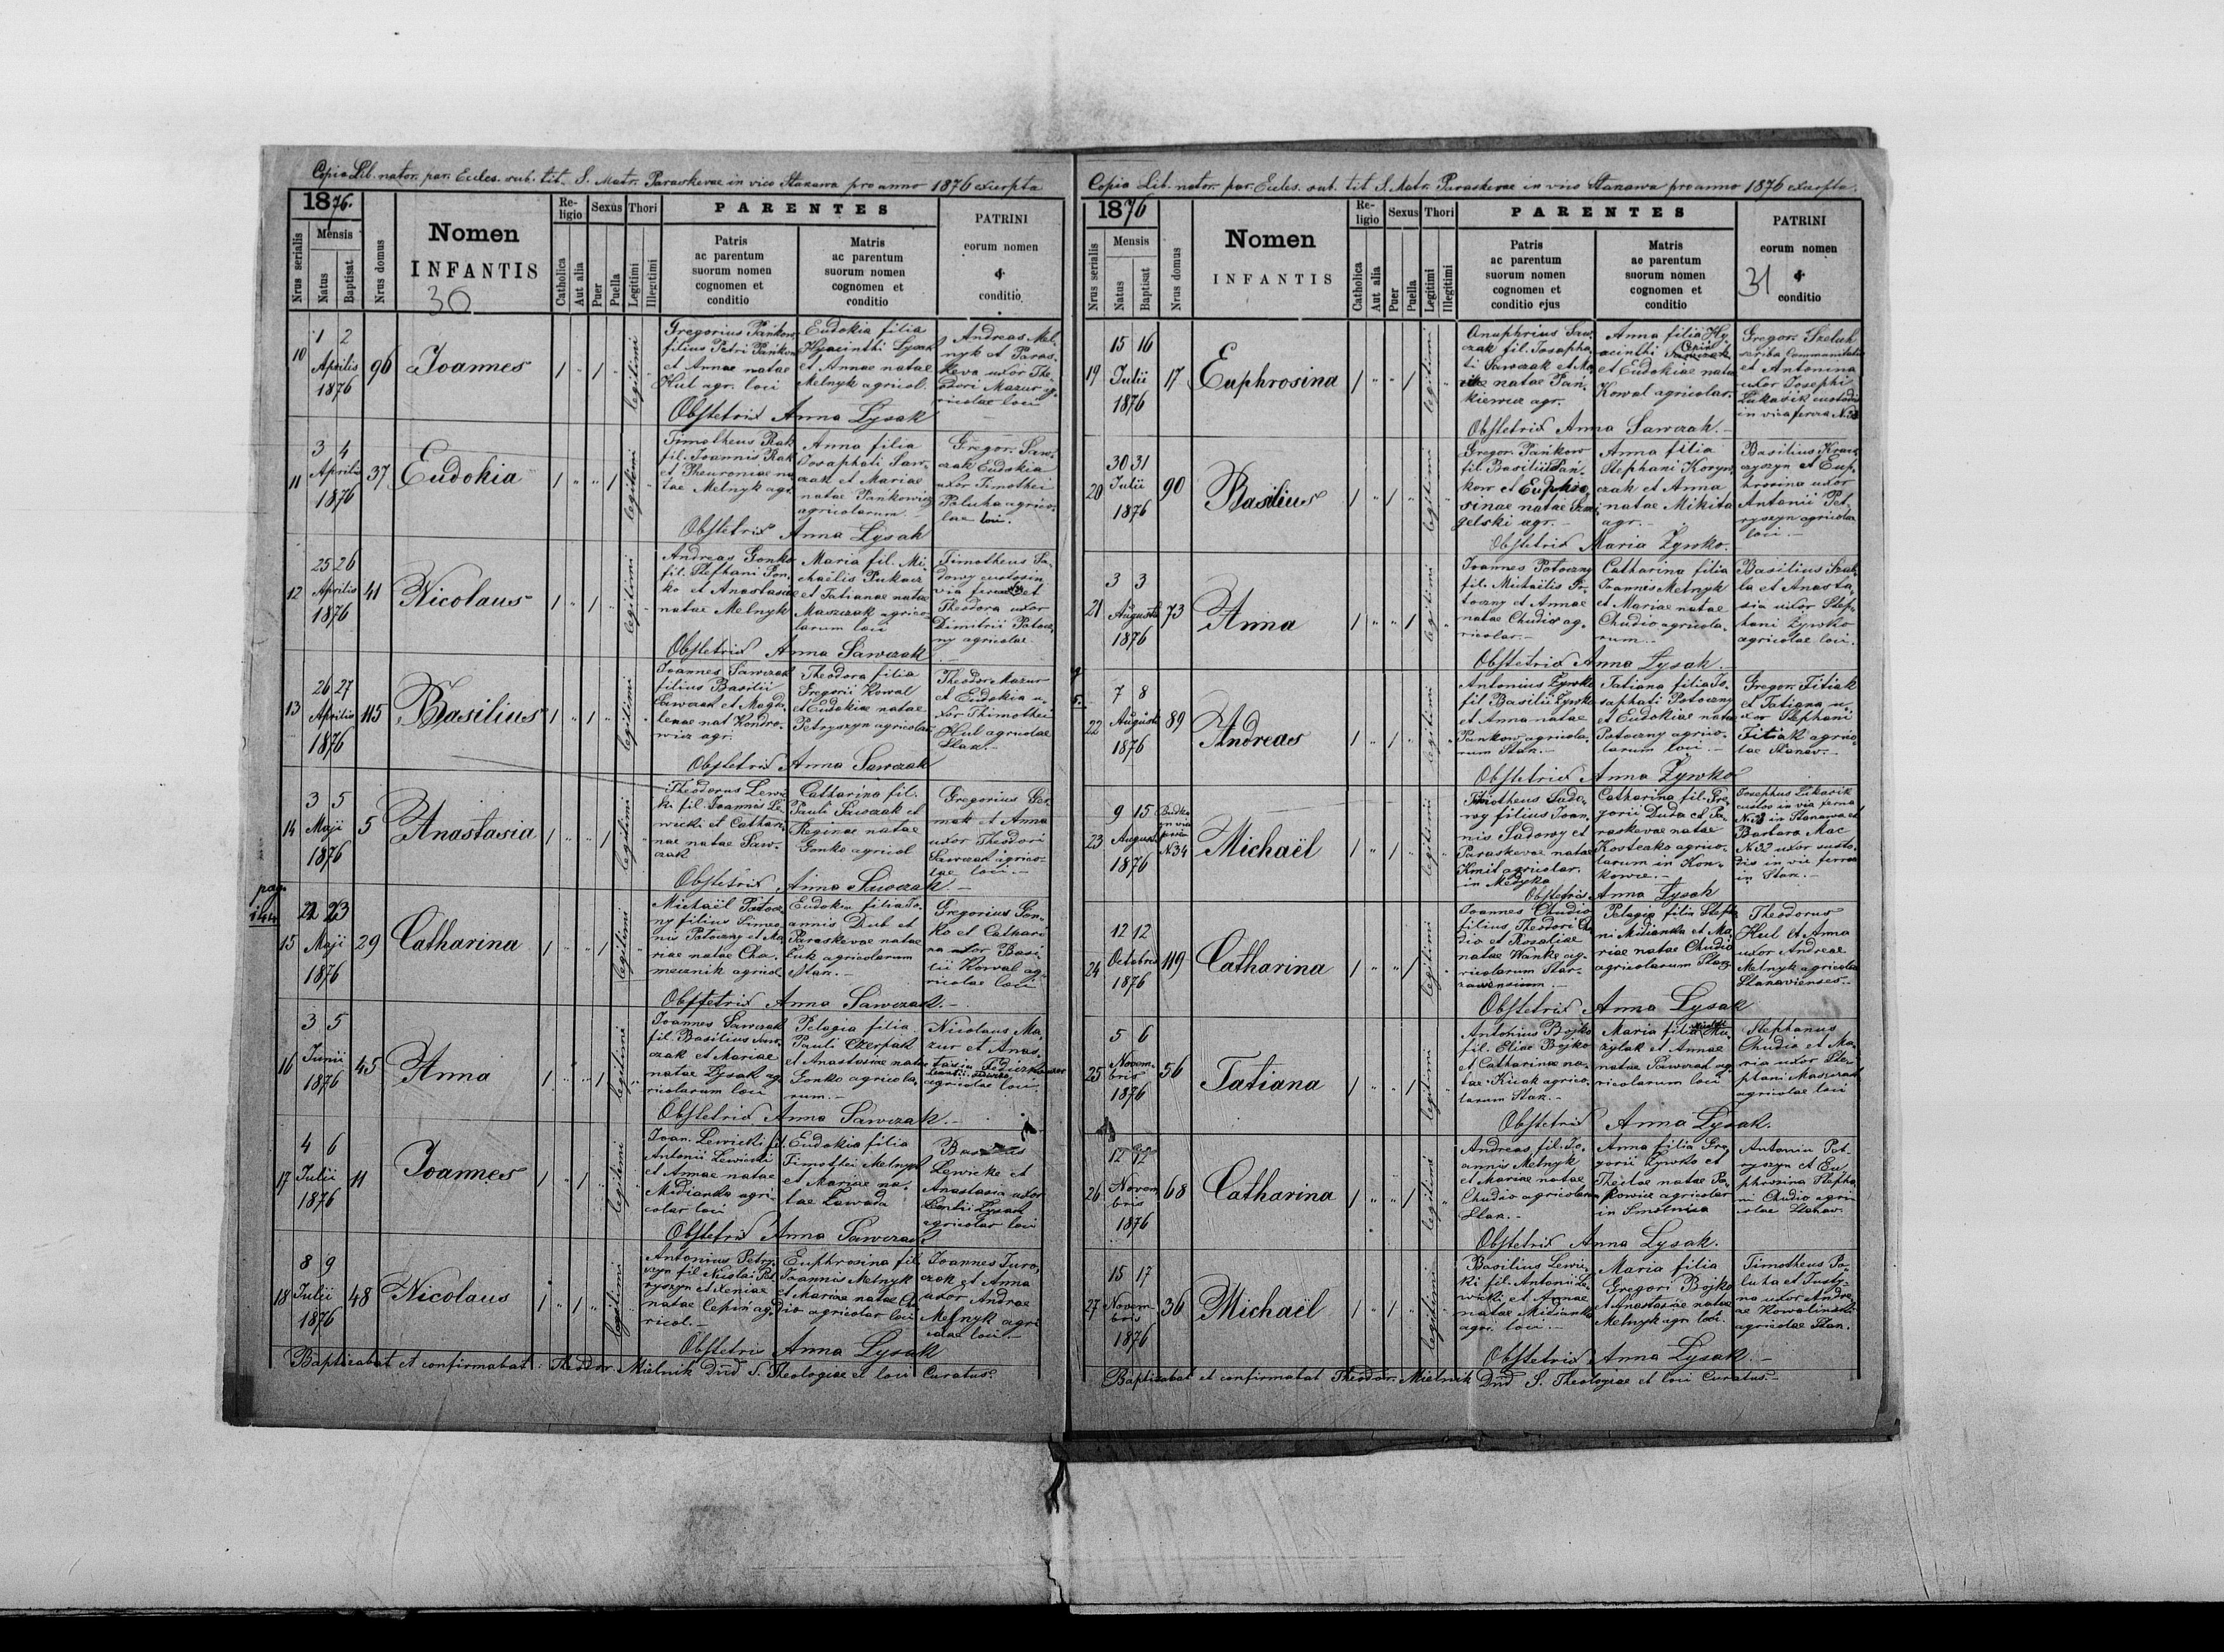 Copia Lib. nator. par. Eccles. sub. tit. S. Matr. Paraskevae in vico Stanawa pro anno 1876 excerpta
1876.
Nrus serialis
Mensis
Natus
Baptisat
Nrus domus
Nomen
INFANTIS
30
Religio
Catholica
Aut alia
Sexus
Puer
Puella
Thori
Legitimi
Illegitimi
PARENTES
Patris
ac parentum
suorum nomen
cognomen et
conditio
Matris
ac parentum
suorum nomen
cognomen et
conditio
PATRINI
eorum nomen
&
conditio
10
1 2
Aprilis
1876
96
Joannes
legitimi
Gregorius Pańkow
filius Petri Pańkow
et Annae natae
Hul agr. loci
Eudokia filia
Hyacinthi Lysak
et Annae natae
Melnyk agricol.
Andreas Mel-
nyk et Paras-
keva uxor The-
odori Mazur ag-
ricolae loci
Obstetrix Anna Lysak
11
3 4
Aprilis
1876
37
Eudokia
legitimi
Timotheus Rak
fil. Joannis Rak
et Pheuroniae na-
tae Melnyk agr.
Anna filia
Josaphati Saw-
czak et Mariae
natae Pańkowicz
agricolarum
Gregor. Saw-
czak Eudokia
uxor Timothei
Paluha agrico-
lae loci.
Obstetrix Anna Lysak
12
25 26
Aprilis
1876
41
Nicolaus
legitimi
Andreas Gonko
fil. Stephani Gon-
ko et Anastasiae
natae Melnyk
Maria fil. Mi-
chaëlis Pukacz
et Tatianae natae
Maszczak agrico-
larum loci
Timotheus Sa-
dowy custos in
via ferrea et
Theodora uxor
Dimitrii Potocz-
ny agricolae
Obstetrix Anna Sawczak
13
26 27
Aprilis
1876
115
Basilius
legitimi
Joannes Sawczak
filius Basilii
Sawczak et Magda-
lenae nat Kondro-
wicz agr.
Theodora filia
Gregorii Kowal
et Eudokiae natae
Petryszyn agricolar.
Theodor Mazur
et Eudokia u-
xor Thimothei
Hul agricolae
Stan.
Obstetrix Anna Sawczak
14
3 5
Maji
1876
5
Anastasia
legitimi
Theodorus Lewic-
ki fil. Joannis Le-
wicki et Cathari-
nae natae Saw-
czak
Catharina fil.
Pauli Sawczak et
Reginae natae
Gonko agricol
Gregorius Ger-
mak et Anna
uxor Theodori
Sawczak agrico-
lae loci.
Obstetrix Anna Sawczak.
15
22 23
Maji
1876
29
Catharina
legitimi
Michaël Potocz-
ny filius Simeo-
nis Potoczny et Ma-
riae natae Cha-
mecznik agricol.
Eudokia filia Jo-
annis Dub et
Paraskevae natae
Łuk agricolarum
Stan.
Gregorius Gon-
ko et Cathari
na uxor Basi-
lii Kowal ag-
ricolae loci
Obstetrix Anna Sawczak.
16
3 5
Junii
1876
45
Anna
legitimi
Joannes Sawczak
fil. Basilius Saw-
czak et Mariae
natae Lysak ag-
ricolarum loci
Pelagia filia
Pauli Czerpak
et Anastasiae natae
Gonko agricola-
rum.
Nicolaus Ma-
zur et Anas-
tasia
agricolae loci.
Obstetrix Anna Sawczak.
17
4 6
Julii
1876
11
Joannes
legitimi
Joan. Lewicki fil.
Antonii Lewicki
et Annae natae
Midianka agri-
colar loci
Eudokia filia
Timothei Melnyk
et Mariae na-
tae Zawada
Basilius
Lewicke et
Anastasia uxor
Leontii Lysak
agricolar loci
Obstetrix Anna Sawczak
18
8 9
Julii
1876
48
Nicolaus
legitimi
Antonius Petry-
szyn fil Nicolai Pet-
ryszyn et Xeniae
natae Cepiń ag-
ricol.
Euphrosina fil.
Joannis Melnyk
et Mariae natae Chu-
dio agricolar loci
Joannes Juro-
czak et Anna
uxor Andrae
Melnyk agri
colae loci.
Obstetrix Anna Lysak
Baptisabat et confirmabat: Theodor. Mielnik Dnd S. Theologiae et loci Curatus.
Copia Lib. nator. par. Eccles. sub. tit S. Matr. Paraskevae in vico Stanawa pro anno 1876 excerpta.
1876
Nrus serialis
Mensis
Natus
Baptisat
Nrus domus
Nomen
INFANTIS
Religio
Catholica
Aut alia
Sexus
Puer
Puella
Thori
Legitimi
Illegitimi
PARENTES
Patris
ac parentum
suorum nomen
cognomen et
conditio ejus
Matris
ac parentum
suorum nomen
cognomen et
conditio
PATRINI
eorum nomen
31 &
conditio
19
15 16
Julii
1876
17
Euphrosina
legitimi
Onuphrius Saw-
czak fil. Josapha-
ti Sawczak et Ma-
riae natae Pań-
kiewicz agr.
Anna filia Hy-
acinthi Cepiń
et Eudokiae natae
Kowal agricolar.
Gregor. Szeluh
scriba Communitatis
et Antonina
uxor Josephi
Lukasik custodis
in via ferrea N. 33
Obstetrix Anna Sawczak.
20
30 31
Julii
1876
90
Basilius
legitimi
Gregor. Pańkow
fil Basilii Pań-
kow et Euphro-
sinae natae
gelski agr.
Anna filia
Stephani Koryn-
czak et Anna
natae Mikita
agr.
Basilius Kraw-
czyszyn et Eup-
hrosina uxor
Antonii Pet-
ryszyn agricolae
loci.
Obstetrix Maria Żywko.
21
3 3
Augusti
1876
73
Anna
legitimi
Joannes Potoczny
fil. Michaëlis Po-
toczny et Annae
natae Chudio ag-
ricolar.
Catharina filia
Joannis Melnyk
et Mariae natae
Chudio agricola-
rum.
Basilius Szub-
la et Anasta-
sia uxor Step-
hani Żywko
agricolae loci.
Obstetrix Anna Lysak.
22
7 8
Augusti
1876
89
Andreas
legitimi
Antonius Żywko
fil Basilii Żywko
et Anna natae
Pańkow agricola-
rum Stan.
Tatiana filia Jo-
saphati Potoczny
et Eudokiae natae
Potoczny agrico-
larum loci.
Gregor. Fitiak
et Tatiana u-
xor Stephani
Fitiak agrico-
lae Stanaw.
Obstetrix Anna Żywko
23
9 15
August.
1876
Budka
in via
ferrea
N. 34
Michaël
legitimi
Timotheus Sado-
wy filius Joan-
nis Sadowy et
Paraskevae natae
Kmit agricolar.
in Medyka
Catharina fil. Gre-
gorii Duda et Pa-
raskevae natae
Kosteako agrico-
larum in Kon-
kowce.
Josephus Likasik
custos in via ferrea
N. 33 in Stanawa et
Barbara Mac
N. 32 uxor custo-
dis in via ferrea
in Stan.
Obstetrix Anna Lysak
24
12 12
Octobris
1876
119
Catharina
legitimi
Joannes Chudio
filius Theodori Chu
dio et Rozaliae
natae Wanke ag-
ricolarum Stan-
Pelagia filia Steph-
ni Midianka et Ma-
riae natae Chudio
agricolarum Stan.
Theodorus
Hul et Anna
uxor Andreae
Melnyk agricolae
Stanavienses.
Obstetrix Anna Lysak
25
5 6
Novem-
bris
1876
56
Tatiana
legitimi
Antonius Bojko
fil. Eliae Bojko
et Catharinae na-
tae Kicak agrico-
larum Stan.
Maria filia
et Annae
natae Sawczak ag-
ricolarum loci
Stephanus
Chudio et Ma-
ria uxor Ste-
phani Maszczak
agricolae loci
Obstetrix Anna Lysak.
26
12 12
Novem
bris
1876
68
Catharina
legitimi
Andreas, fil. Jo-
annis Melnyk
et Mariae natae
Chudio agricolarum
Stan.
Anna filia Gre-
gorii Żywko et
Theclae natae Pa-
kowicz agricolar
in Smolnica
Antonia Pet-
ryszyn et Eu-
phrosina Stepha-
ni Chudio agri-
colae Stanaw.
Obstetrix Anna Lysak.
27
15 17
Novem-
bris
1876
36
Michaël
legitimi
Basilius Lewic-
ki fil. Antonii Le-
wicki et Annae
natae Midianka
agri. loci.
Maria filia
Gregori Bojko
et Anastasiae natae
Melnyk agr. loci.
Timotheus Pa-
luha et Justy-
na uxor Andre-
ae Kowalinski
agricolae Stan.
Obstetrix Anna Lysak.
Baptisabat et confirmabat Theodor. Mielnik Dnd S. Theologiae et loci Curatus.